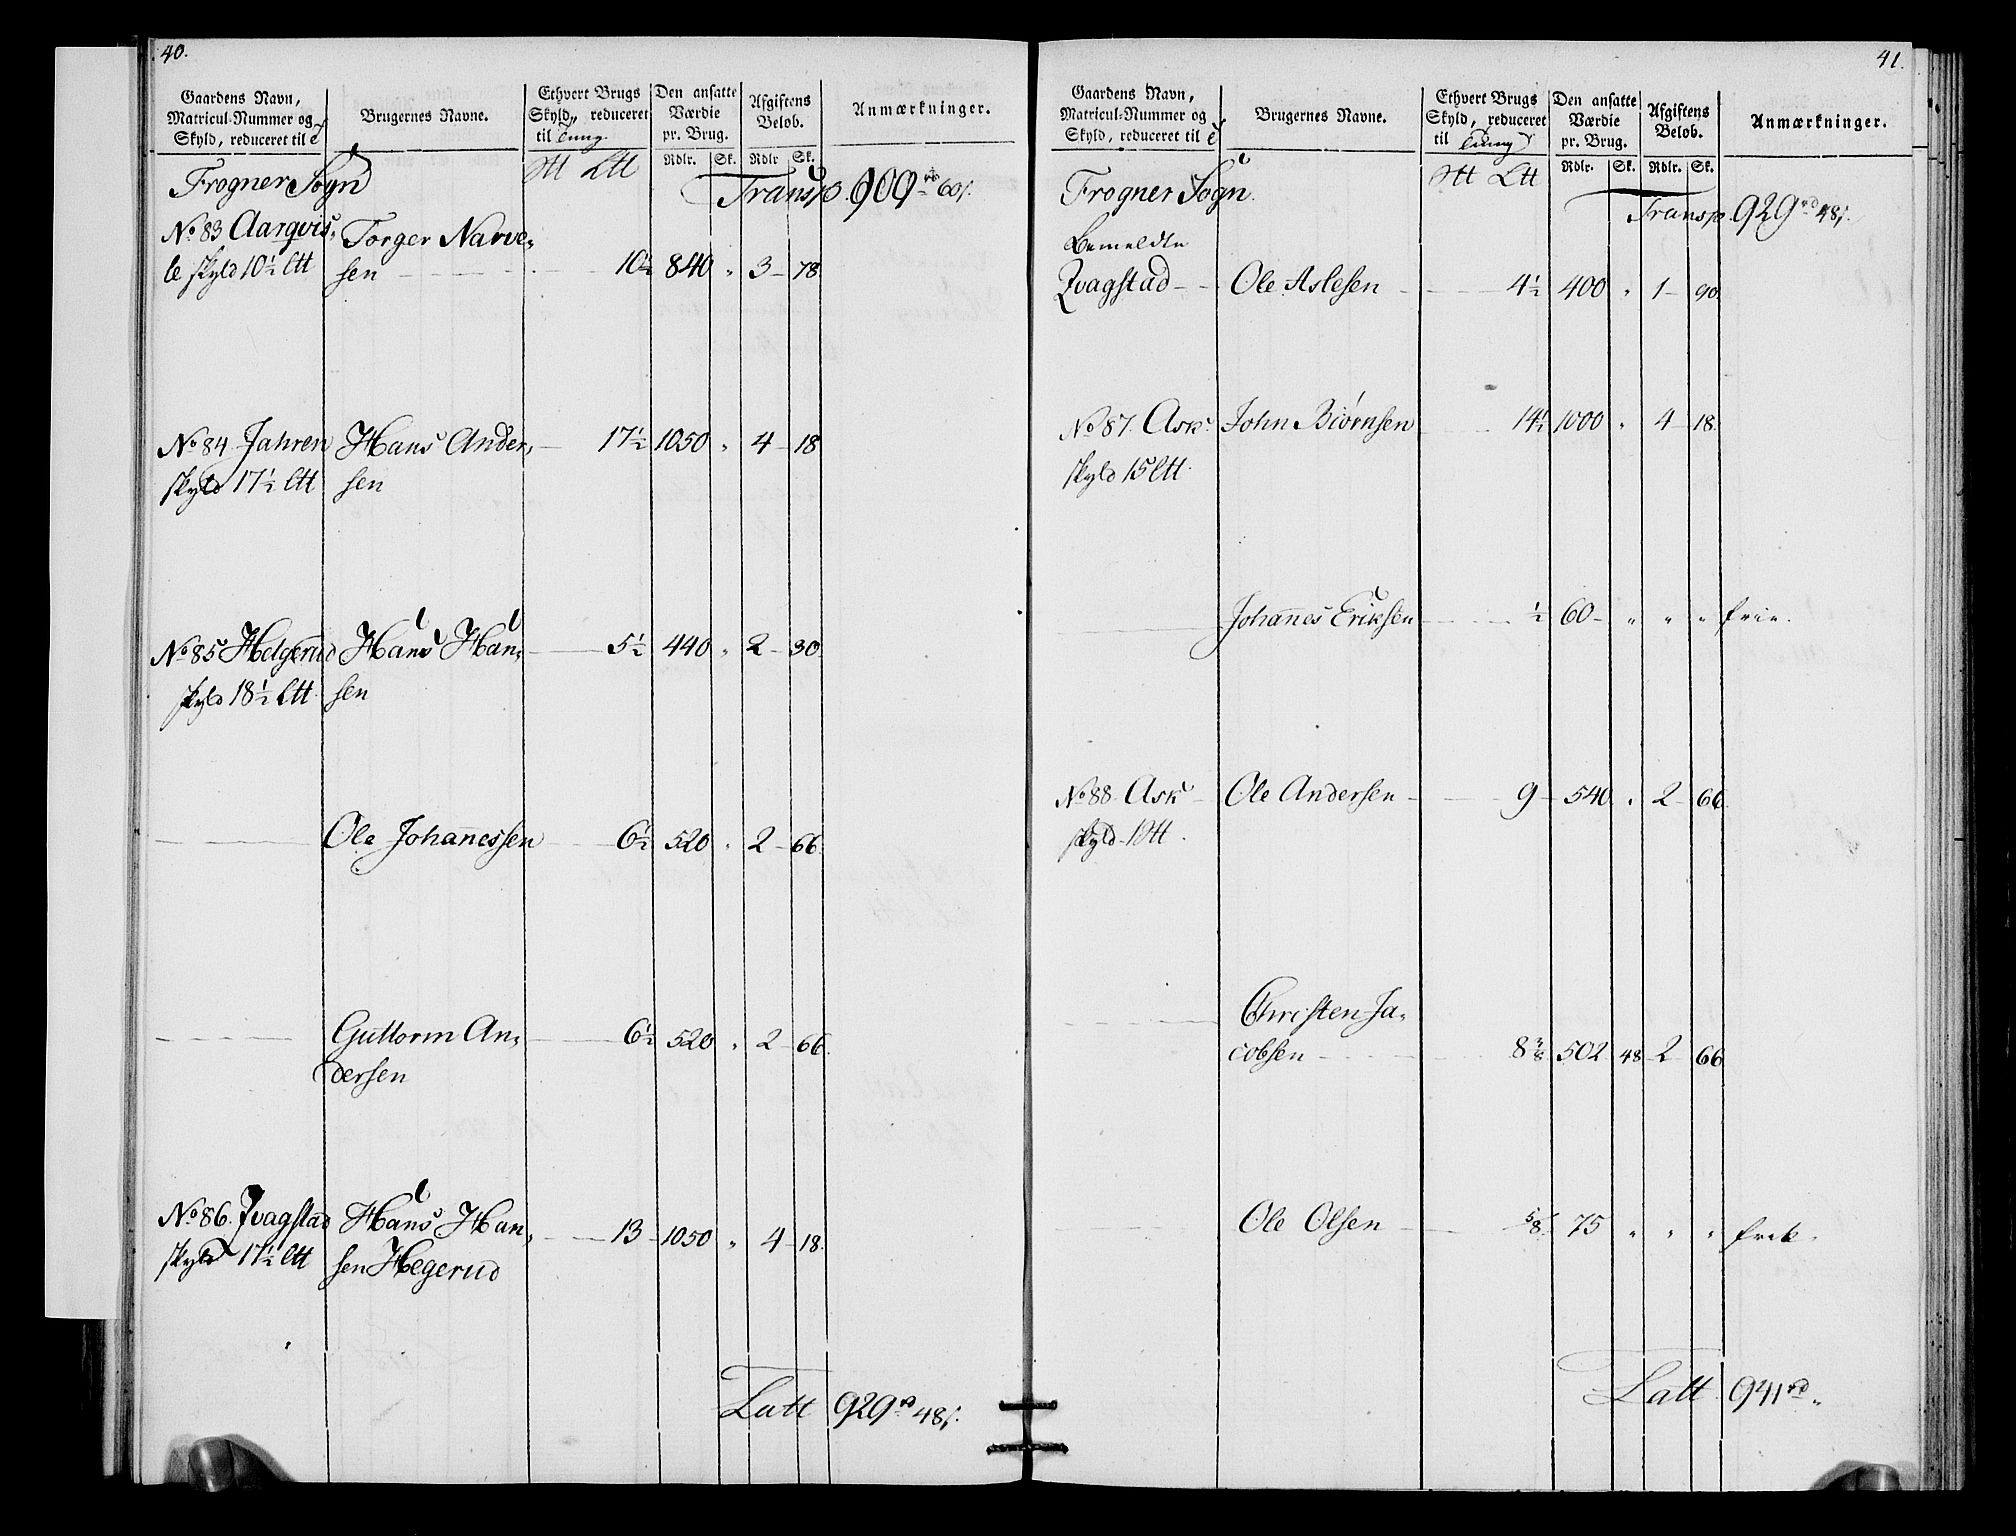 40.
Gaardens Navn, Matricul-Nummer og Skyld, reduceret til
Brugernes Navne.
Ethvert Brugs Skyld, reduceret til Tung.
Den ansatte Værdie pr. Brug.
Afgiftens Beløb.
Anmærkninger.
Rdlr. Sk. Rdlr Sk.
Frogner Sogn
Transp. 909 rd 60 s.
No. 83 Aarqvis- Torger Narve-
le skyld 10½ Ltt sen 10½ 840 " 3 - 78.
No. 84 Jahren Hans Ander- 17½ 1050 " 4 - 18
skyld 17½ Ltt sen
No. 85 Helgerud Hans Han- 5½ 440 " 2 - 30.
skyld 18½ Ltt. sen
Ole Johanessen 6½ 520 " 2 - 66.
Guttorm An- 6½ 520 " 2 - 66.
dersen
No. 86. Qvagstad Hans Han- 13 - 1050 " 4 - 18.
skyld 17½ Ltt sen Hegerud
Latt 929 rd 48 s.
41.
Gaardens Navn, Matricul-Nummer og Skyld, reduceret til
Brugernes Navne.
Ethvert Brugs Skyld, reduceret til Tung
Den ansatte Værdie pr. Brug.
Afgiftens Beløb.
Anmærkninger.
Rdlr. Sk. Rdlr. Sk.
Frogner Sogn.
Transp. 929 rd 48 s.
Bemeldte
Qvagstad - - Ole Aslesen 4½ 400 " 1 - 90.
No. 87. Ask. John Biørnsen 14½ 1000 " 4 - 18.
skyld 15 Ltt.
Johannes Eriksen ½ 60 - " " " frie.
No. 88. Ask - Ole Andersen - 9 - 540 " 2 - 66.
skyld - 1 Stt.
Christen Ja-
cobsen 8⅜ 502 48 2 66
Ole Olsen ⅝. 75 " " " frie.
Latt. 941 rd "